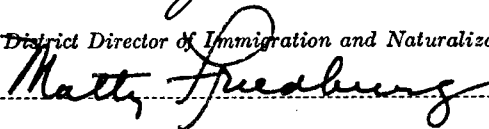 District Director of Immigration and Naturaliza
Matty Friedburg